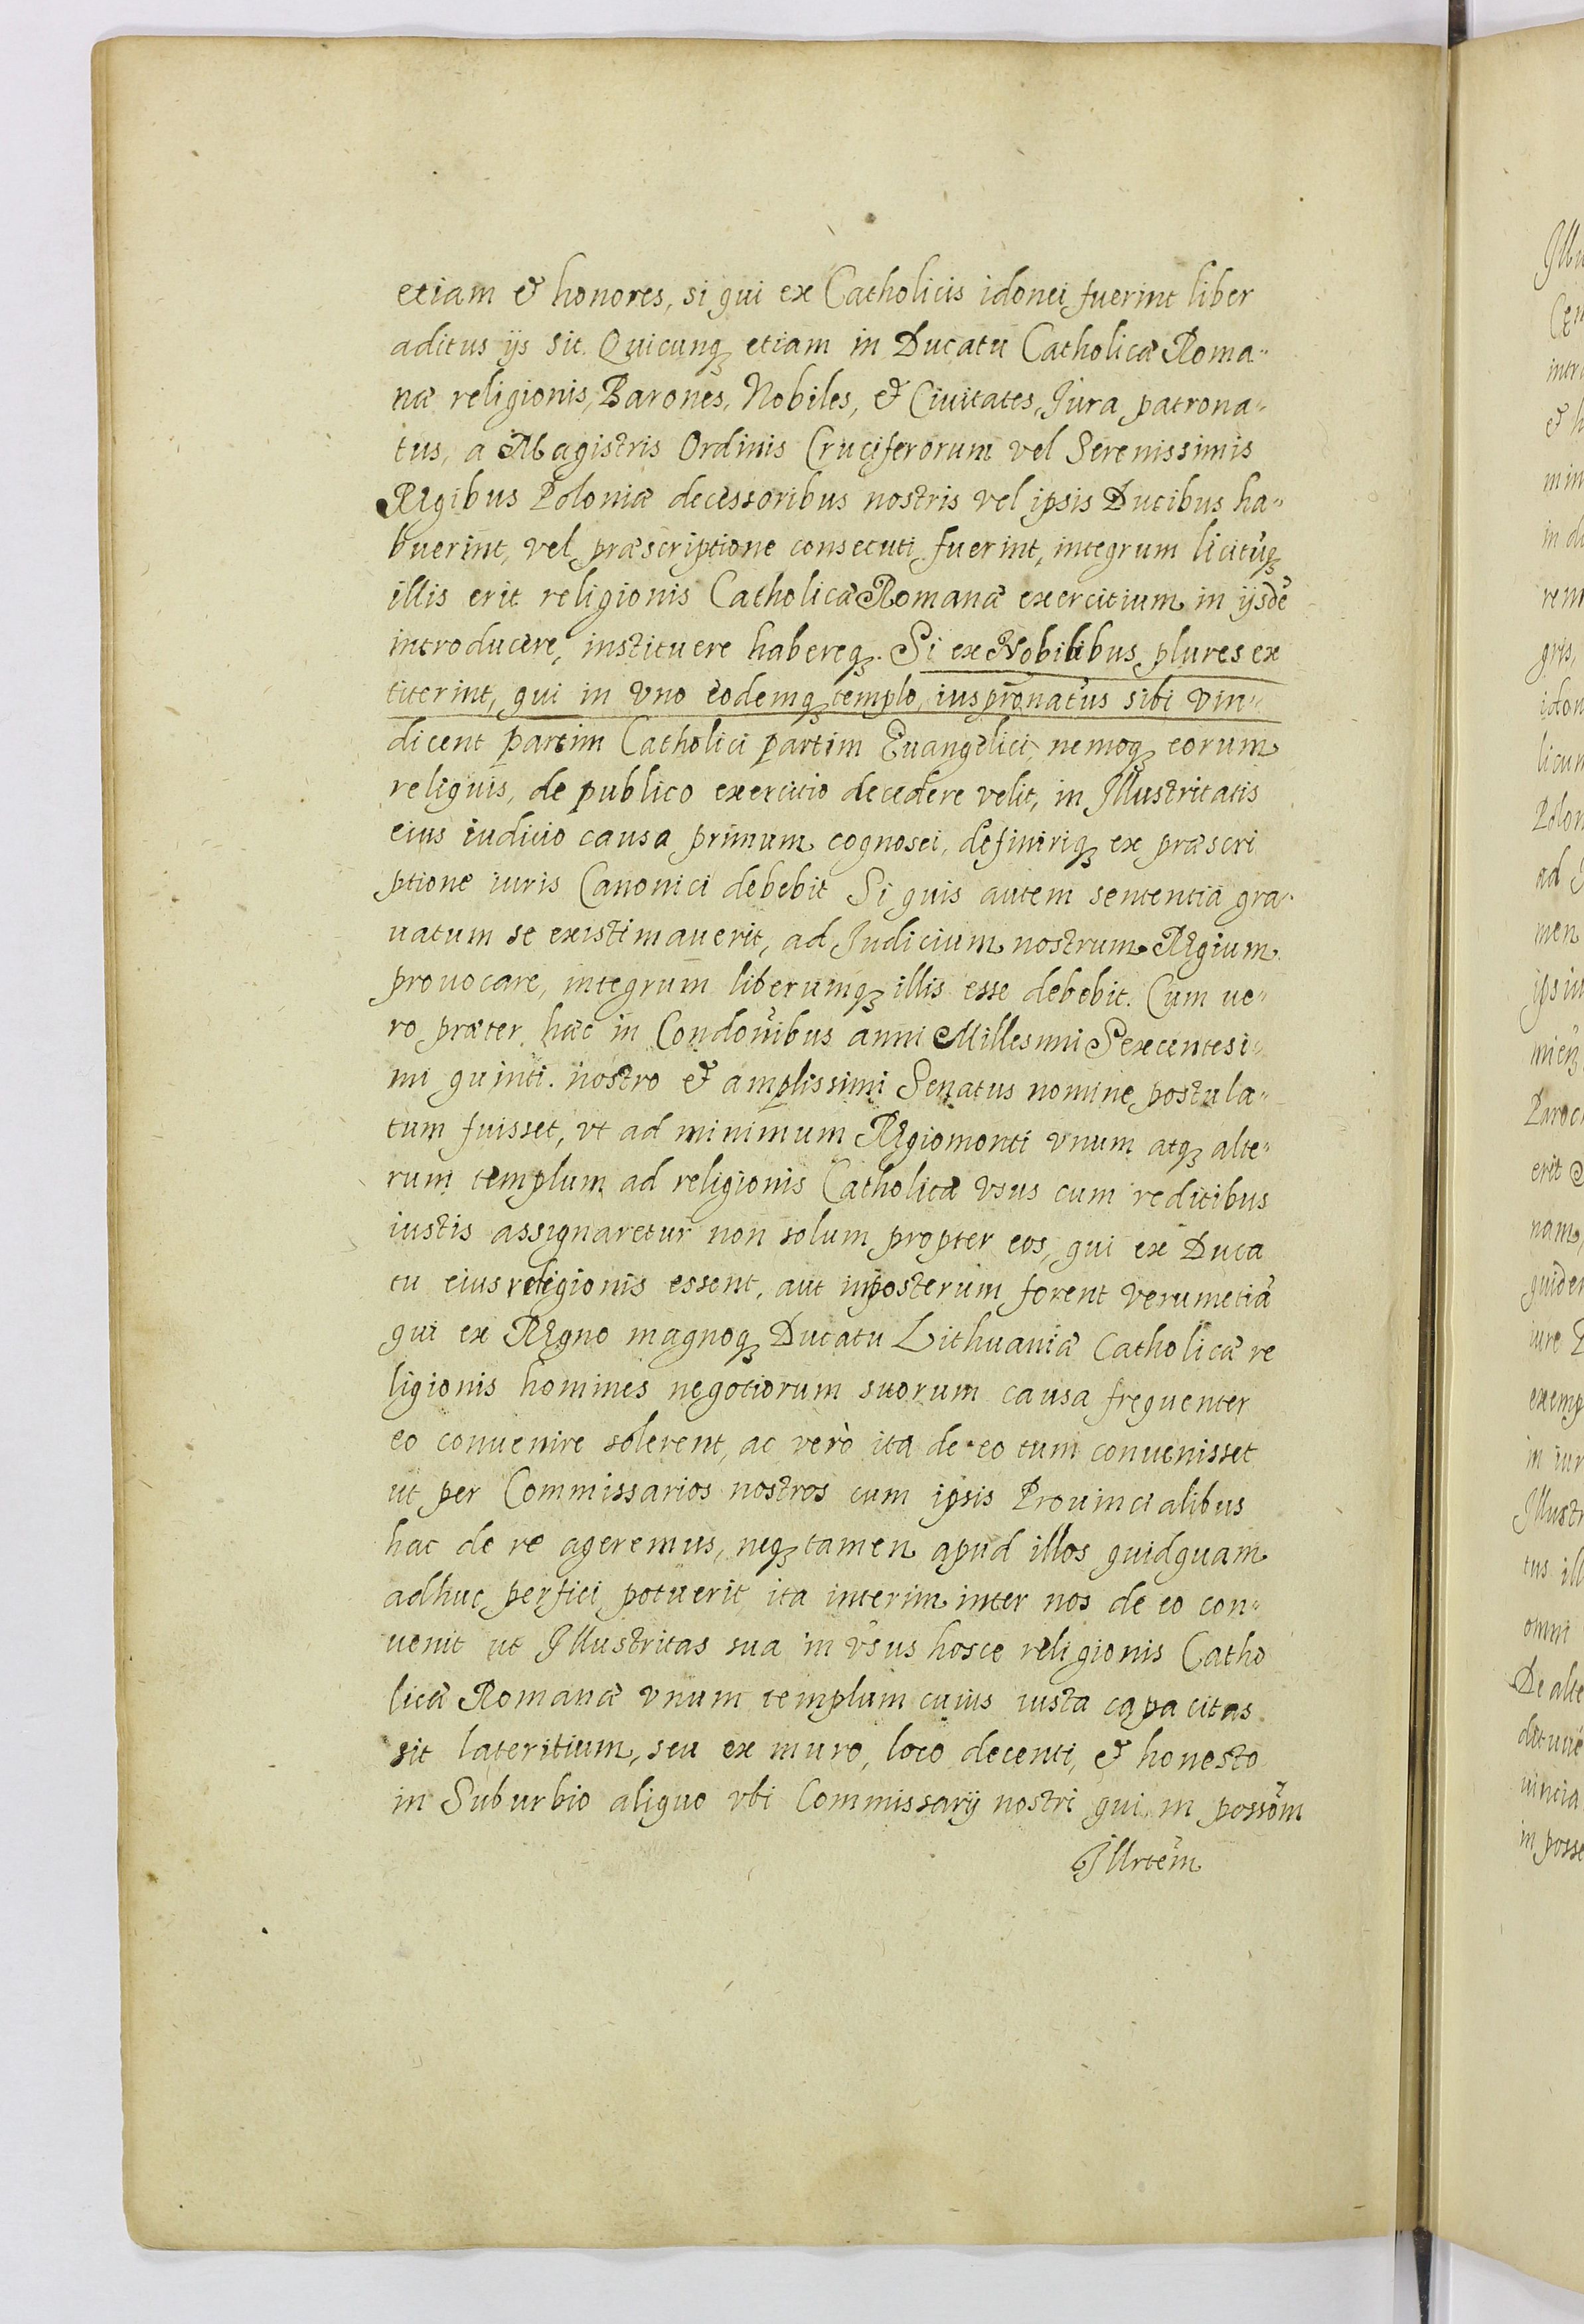 etiam & honores, si qui ex Catholicis idonei fuerint liber
aditus ijs sit. Quicunq; etiam in Ducatu Catholicæ Roma-
næ religionis, Barones, Nobiles, & Ciuitates, Jura patrona-
tus, a Magistris Ordinis Cruciferorum vel Serenissimis
Regibus Poloniæ decessoribus nostris vel ipsis Ducibus ha-
buerint, vel præscriptione consecuti fuerint, integrum licitūq;
illis erit religionis Catholicæ Romanæ exercitium in ijsdē
introducere, instituere habereq;. Si ex Nobilibus plures ex
titerint, qui in vno eodemq; templo, ius pronatus sibi vin-
dicent partim Catholici partim Euangelici, nemoq; eorum
reliquis, de publico exercitio decedere velit, in Illustritatis
eius iudicio causa primum cognosci, definiriq; ex præscri
ptione iuris Canonici debebit Si quis autem sententia gra-
uatum se existimauerit, ad Judicium nostrum Regium
prouocare, integrum liberumq; illis esse debebit. Cum ue-
ro præter hæc in Condonibus anni Millesimi Sexcentesi-
mi quinti. nostro & amplissimi Senatus nomine postula-
tum fuisset, vt ad minimum Regiomonti vnum atq; alte-
rum templum ad religionis Catholicæ vsus cum reditibus
iustis assignaretur non solum propter eos, qui ex Duca
tu eius religionis essent, aut inposterum forent verumetiā
qui ex Regno magnoq; Ducatu Lithuaniæ Catholicæ re
ligionis homines negotiorum suorum causa frequenter
eo conuenire solerent, ac verò ita de eo tum conuenisset
ut per Commissarios nostros cum ipsis Prouincialibus
hac de re ageremus, neq; tamen apud illos quidquam
adhuc perfici potuerit ita interim inter nos de eo con-
uenit ut Illustritas sua in vsus hosce religionis Catho
licæ Romanæ vnum templum cuius iusta capacitas
sit lateritium, seu ex muro, loco decenti, & honesto
in Suburbio aliquo vbi Commissarij nostri qui in possōm
Illrtēm